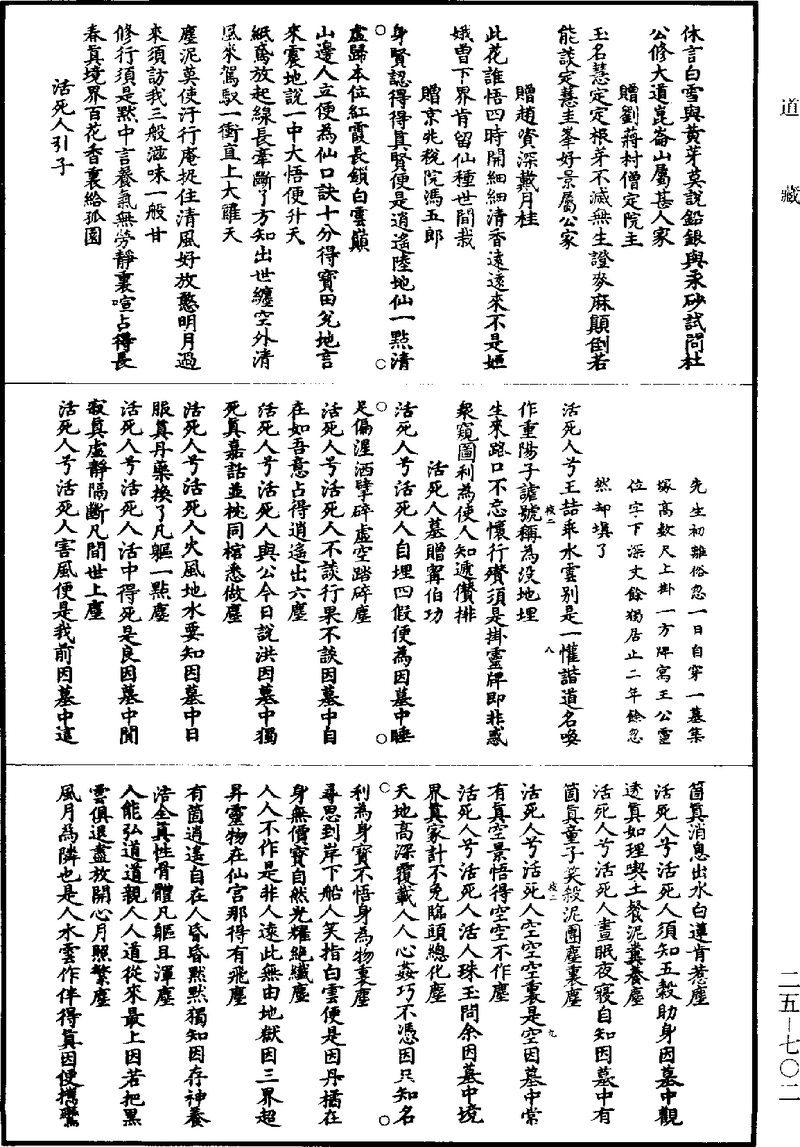 道藏
休言白雪與黃芽莫說鉛銀與汞砂試問杜
公修大道崑崙山屬甚人家
贈劉蔣村僧定院主
玉名慧定定根芽不滅無生證麥麻顛倒若
能談定慧圭峯好景屬公家
贈趙資深戴月桂
此花誰悟四時開細細清香遠遠來不是姮
娥曽下界肯留仙種世間栽
贈京兆稅院馮五郎
身賢認得得真賢便是逍遙陸地仙一點清
虛歸本位紅霞長鎖白雲巔
山邊人立便為仙口訣十分得寶田兊地言
來震地說一中大悟便升天
紙鳶放起線長牽斷了方知出世纏空外清
風來駕馭一衝直上大羅天
塵泥莫使汙行庵捉住清風好放憨明月過
來須訪我三般滋味一般甘
修行須是黙中言養氣無勞靜裏喧占得長
春真境界百花香裏給孤園
活死人引子
先生初離俗忽一日自穿一墓集
塚高數尺上掛一方牌寫王公靈
位字下深丈餘獨居止二年餘忽
然却填了
活死人兮王喆乖水雲别是一懽諧道名喚
作重陽子謔號稱為沒地埋
生來路口不忘懷行殯須是掛靈牌即非惑
衆窺圖利為使人知遞儧排
活死人墓贈寗伯功
活死人兮活死人自埋四假便為因墓中睡
足偏湦洒擘碎虛空踏碎塵
活死人兮活死人不談行果不談因墓中自
在如吾意占得逍遙出六塵
活死人兮活死人與公今日說洪因墓中獨
死真嘉話並枕同棺悉做塵
活死人兮活死人火風地水要知因墓中日
服真丹藥換了凡軀一點塵
活死人兮活死人活中得死是良因墓中閒
寂真虛靜隔斷凡間世上塵
活死人兮活死人害風便是我前因墓中這
箇真消息出水白蓮肯惹塵
活死人兮活死人須知五穀助身因墓中觀
透真如理喫土餐泥糞養塵
活死人兮活死人晝眠夜寢自知因墓中有
箇真童子笑殺泥團塵裏塵
活死人兮活死人空空空裏是空因墓中常
有真空景悟得空空不作塵
活死人兮活死人活人珠玉問余因墓中境
界真家計不免臨頭總化塵
天地高深覆載人人心姦巧不憑因只知名
利為身寶不悟身為物裏塵
尋思到岸下船人笑指白雲便是因丹橘在
身無價寶自然光耀絶纖塵
人人不作是非人逺此無由地獄因三界超
昇靈物在仙宫那得有飛塵
有箇逍遙自在人昏昏黙黙獨知因存神養
浩全真性骨體凡軀且渾塵
人能弘道道親人人道從來最上因若把黑
雲俱退盡放開心月照繁塵
風月為隣也是人水雲作伴得真因便攜鸞
二五—七〇二